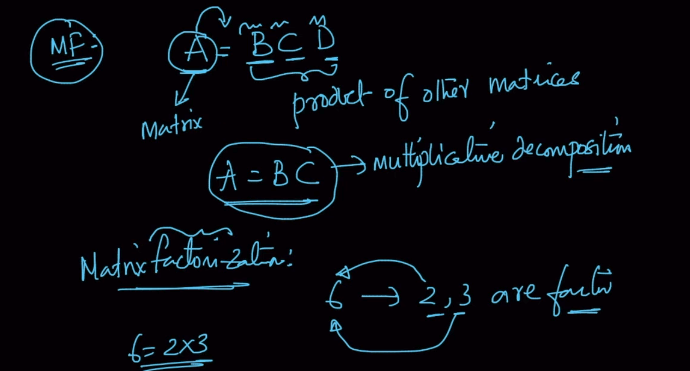 MF-
A = B C D
product of other matrices
Matrix
A = B C → multiplicative decomposition
Matrix factorization:
6 → 2, 3 are factors
6 = 2x3